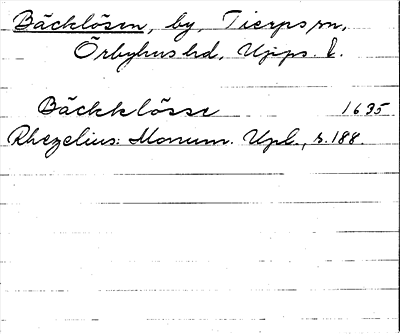 Bäcklösen, by, Tierps sn,
Örbyhus hd, Upps. l.
Bäckklösse 1635
Rhezelius: Monum. Upl., s. 188.